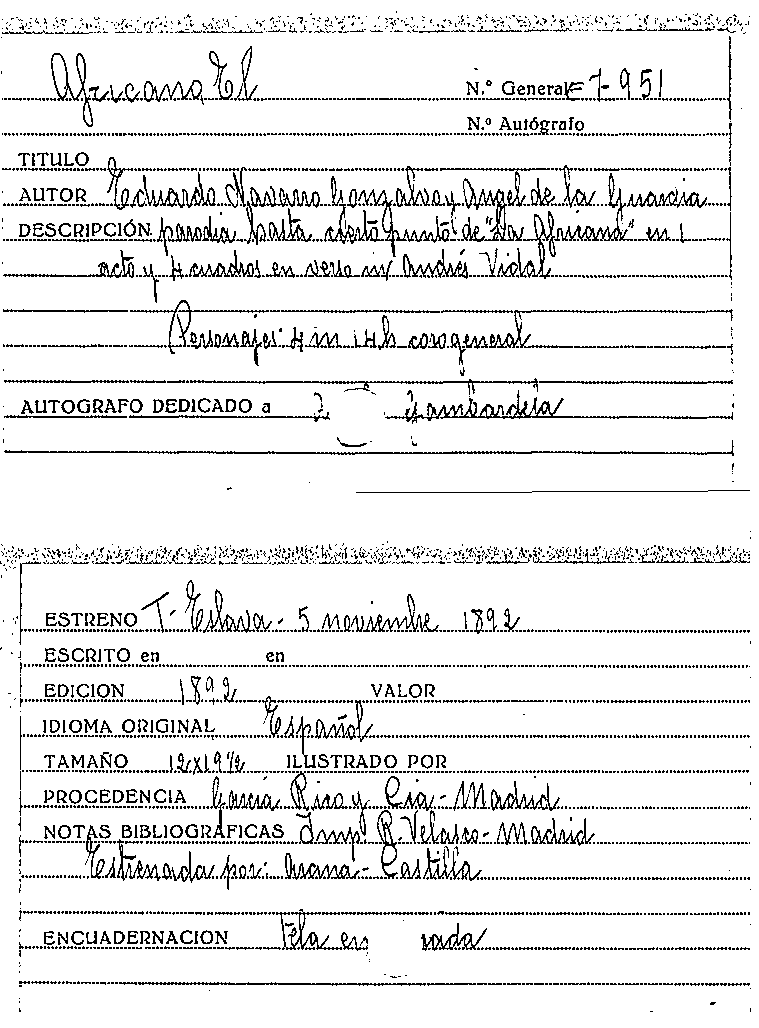 Africano, El
N.º General E 7-951
N.º Autógrafo
TITULO
AUTOR Eduardo Navarro Gonzalvo y Angel de la Guardia
DESCRIPCIÓN parodia hasta cierto punto de "La Africana" en 1
acto y 4 cuadros en verso m/ Andrés Vidal
Personajes 4 m 14 h coro general
AUTOGRAFO DEDICADO a Gambardela
ESTRENO T- Eslava - 5 noviembre 1892
ESCRITO en en
EDICION 1892 VALOR
IDIOMA ORIGINAL Español
TAMAÑO 12x19½ ILUSTRADO POR
PROCEDENCIA García Rico y Cia - Madrid
NOTAS BIBLIOGRÁFICAS Imp R. Velasco - Madrid
Estrenada por: Arana - Castilla
ENCUADERNACION tela